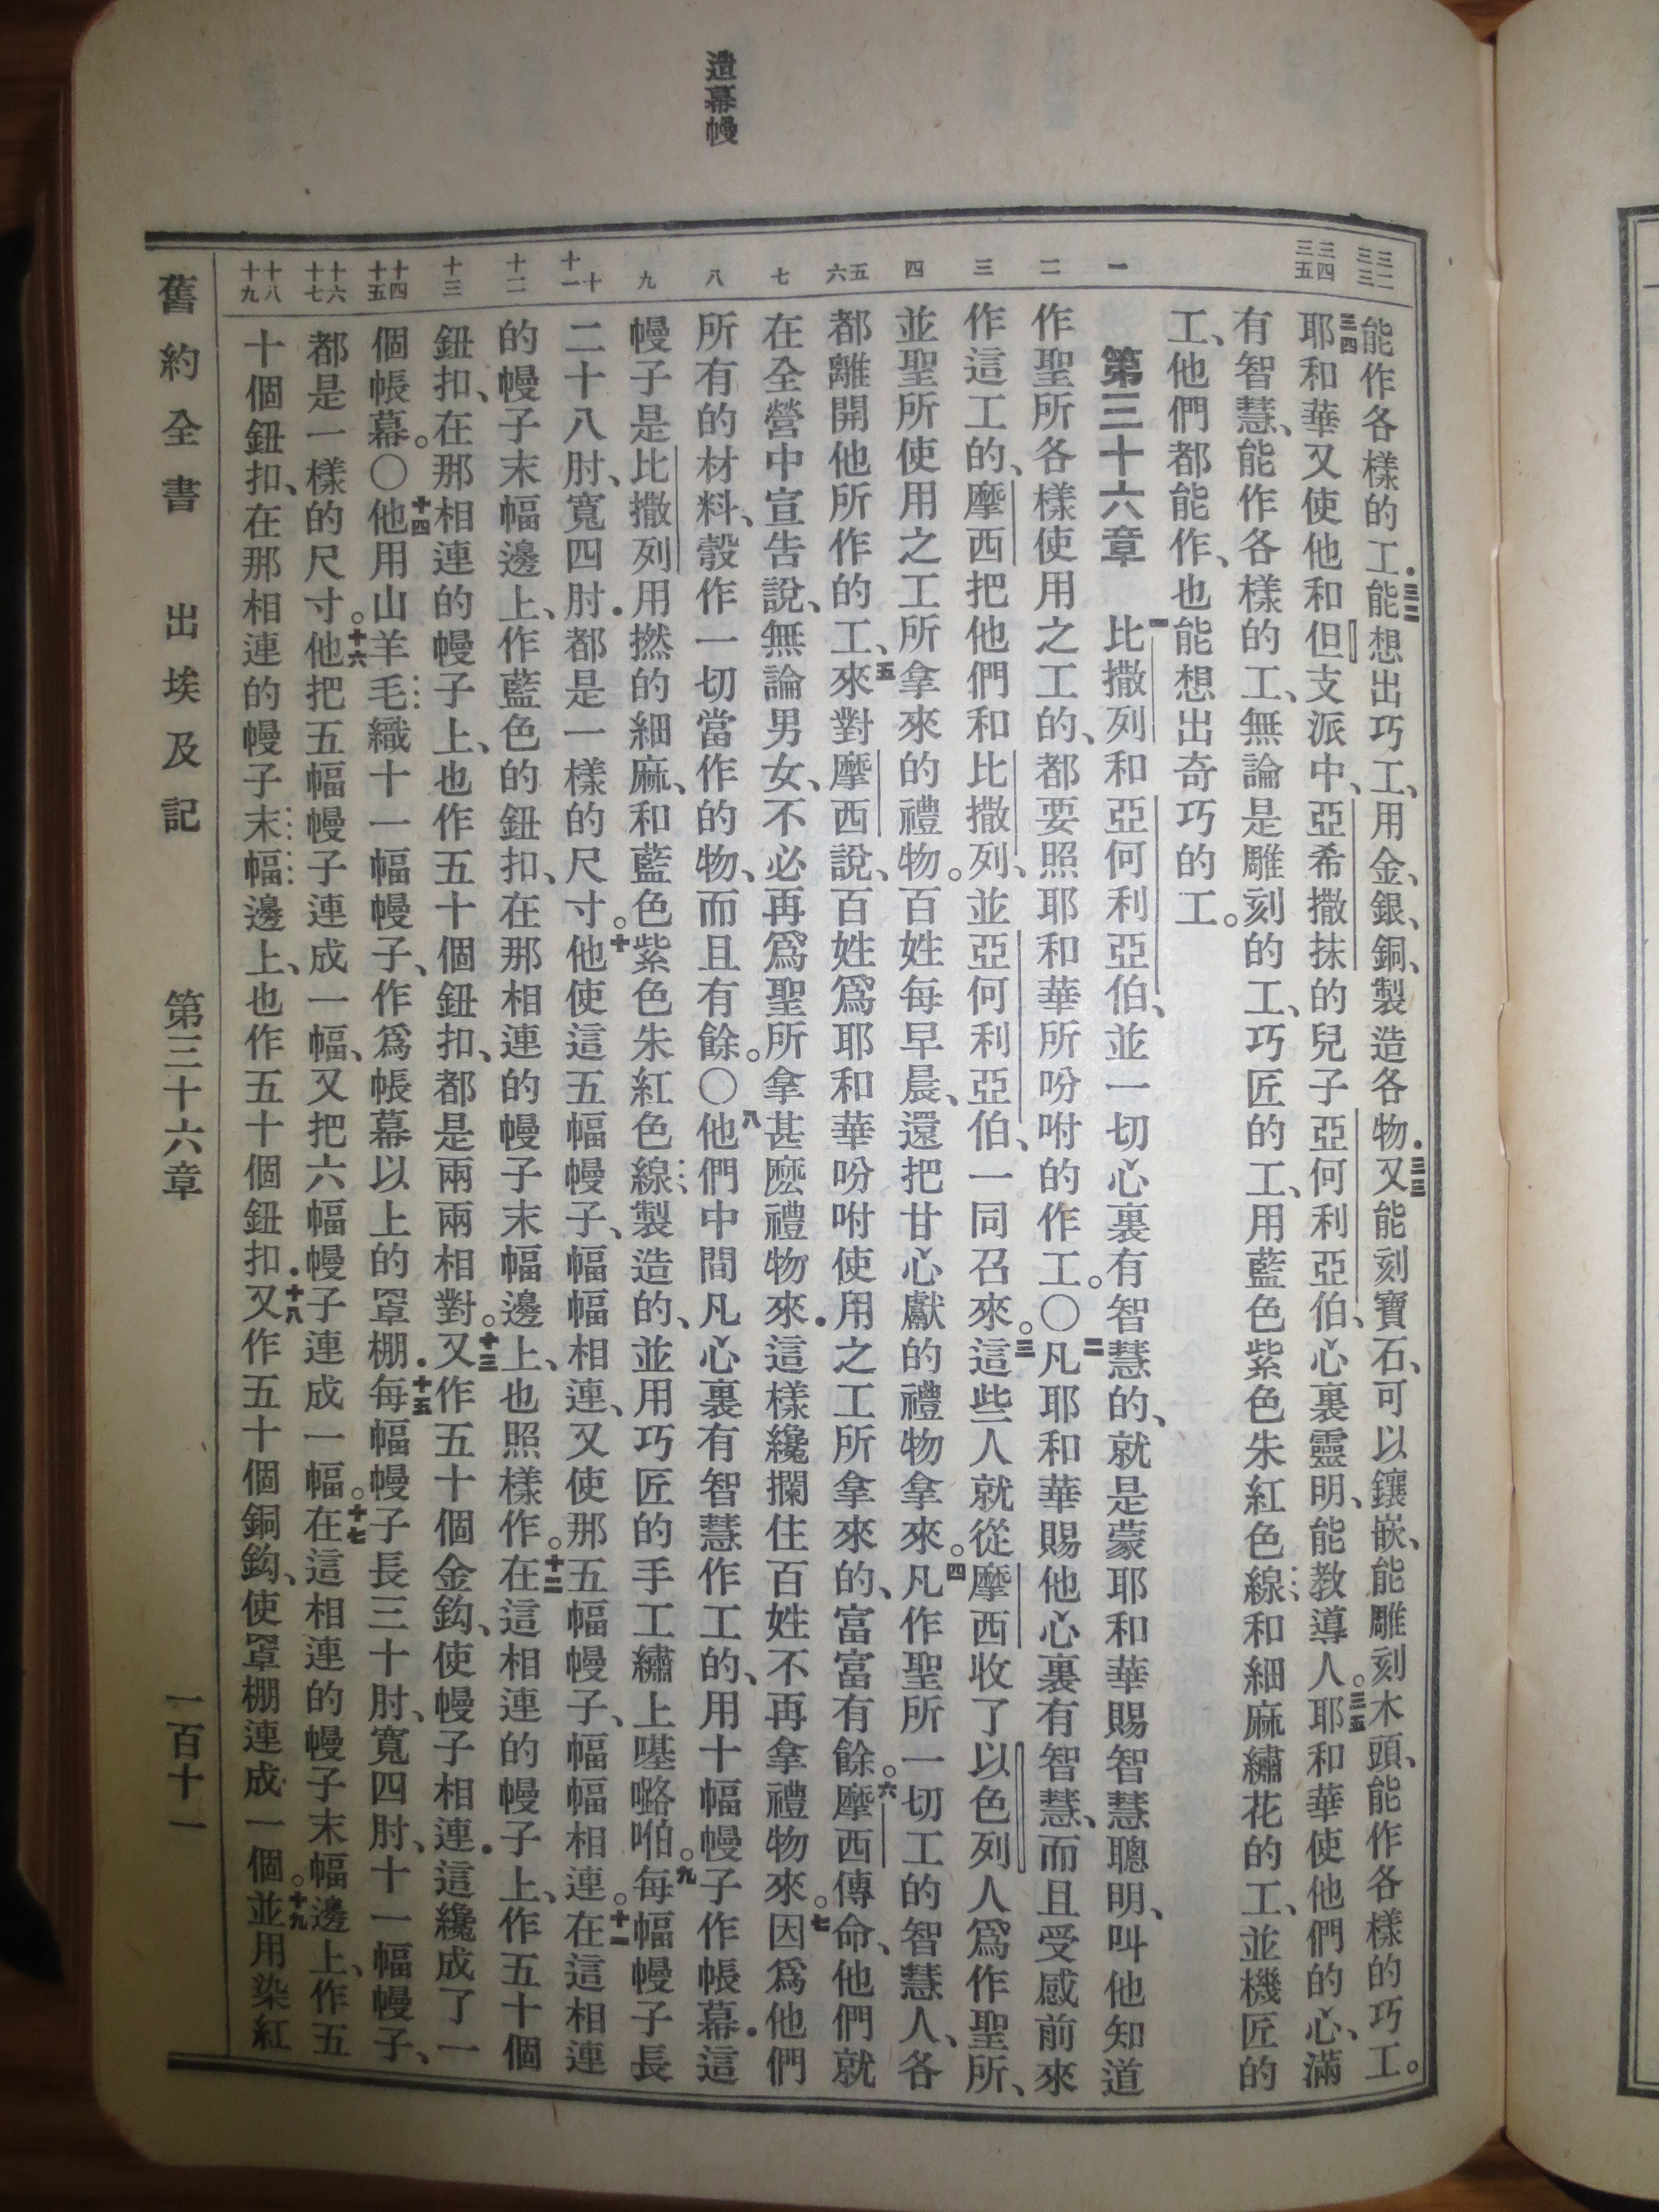 造幕幔
三二 三三
三四 三五
一
二
三
四
五 六
七
八
九
十 十一
十二
十三
十四 十五
十六 十七
十八 十九
能作各樣的工．三二能想出巧工、用金、銀、銅、製造各物．三三又能刻寶石、可以鑲嵌、能雕刻木頭、能作各樣的巧工。
三四耶和華又使他和但支派中、亞希撒抹的兒子亞何利亞伯、心裏靈明、能教導人。三五耶和華使他們的心、滿
有智慧、能作各樣的工、無論是雕刻的工、巧匠的工、用藍色紫色朱紅色線和細麻繡花的工、並機匠的
工、他們都能作、也能想出奇巧的工。
第三十六章 一比撒列和亞何利亞伯、並一切心裏有智慧的、就是蒙耶和華賜智慧聰明、叫他知道
作聖所各樣使用之工的、都要照耶和華所吩咐的作工。〇二凡耶和華賜他心裏有智慧、而且受感前來
作這工的、摩西把他們和比撒列、並亞何利亞伯、一同召來。三這些人就從摩西收了以色列人爲作聖所、
並聖所使用之工所拿來的禮物。百姓每早晨、還把甘心獻的禮物拿來。四凡作聖所一切工的智慧人、各
都離開他所作的工、五來對摩西說、百姓爲耶和華吩咐使用之工所拿來的、富富有餘。六摩西傳命、他們就
在全營中宣告說、無論男女、不必再爲聖所拿甚麽禮物來．這樣纔攔住百姓不再拿禮物來。七因爲他們
所有的材料、彀作一切當作的物、而且有餘。〇八他們中間凡心裏有智慧作工的、用十幅幔子作帳幕．這
幔子是比撒列用撚的細麻、和藍色紫色朱紅色線製造的、並用巧匠的手工繡上𠼻㗉啪。九每幅幔子長
二十八肘、寬四肘．都是一樣的尺寸。十他使這五幅幔子、幅幅相連、又使那五幅幔子、幅幅相連。十一在這相連
的幔子末幅邊上、作藍色的鈕扣、在那相連的幔子末幅邊上、也照樣作。十二在這相連的幔子上、作五十個
鈕扣、在那相連的幔子上、也作五十個鈕扣、都是兩兩相對。十三又作五十個金鈎、使幔子相連．這纔成了一
個帳幕。〇十四他用山羊毛織十一幅幔子、作爲帳幕以上的罩棚．十五每幅幔子長三十肘、寬四肘、十一幅幔子、
都是一樣的尺寸。十六他把五幅幔子連成一幅、又把六幅幔子連成一幅。十七在這相連的幔子末幅邊上、作五
十個鈕扣、在那相連的幔子末幅邊上、也作五十個鈕扣．十八又作五十個銅鈎、使罩棚連成一個。十九並用染紅
舊約全書 出埃及記 第三十六章 一百十一